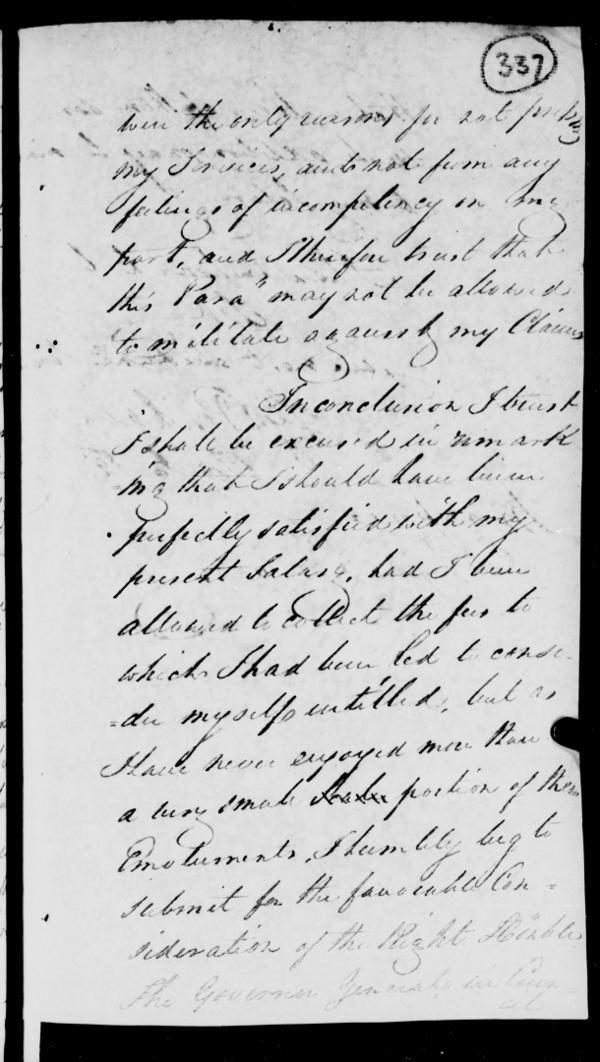 337
were the only reasons for not
my Services, and not from any
feelings of incompetency on my
part, and I therefore trust that
this Para" may not be allowed
to militate against my Claims
In conclusion I trust
I shall be excused in remark
-ing that I should have been
perfectly satisfied with my
present Salary, had I been
allowed to collect the fees to
which I had been led to consi-
-der myself entitled, but as
I have never enjoyed more than
a very small portion of these
Emoluments, I humbly beg to
submit for the favorable Con=
sideration of the Right Honble
The Governor General in Coun-
cil